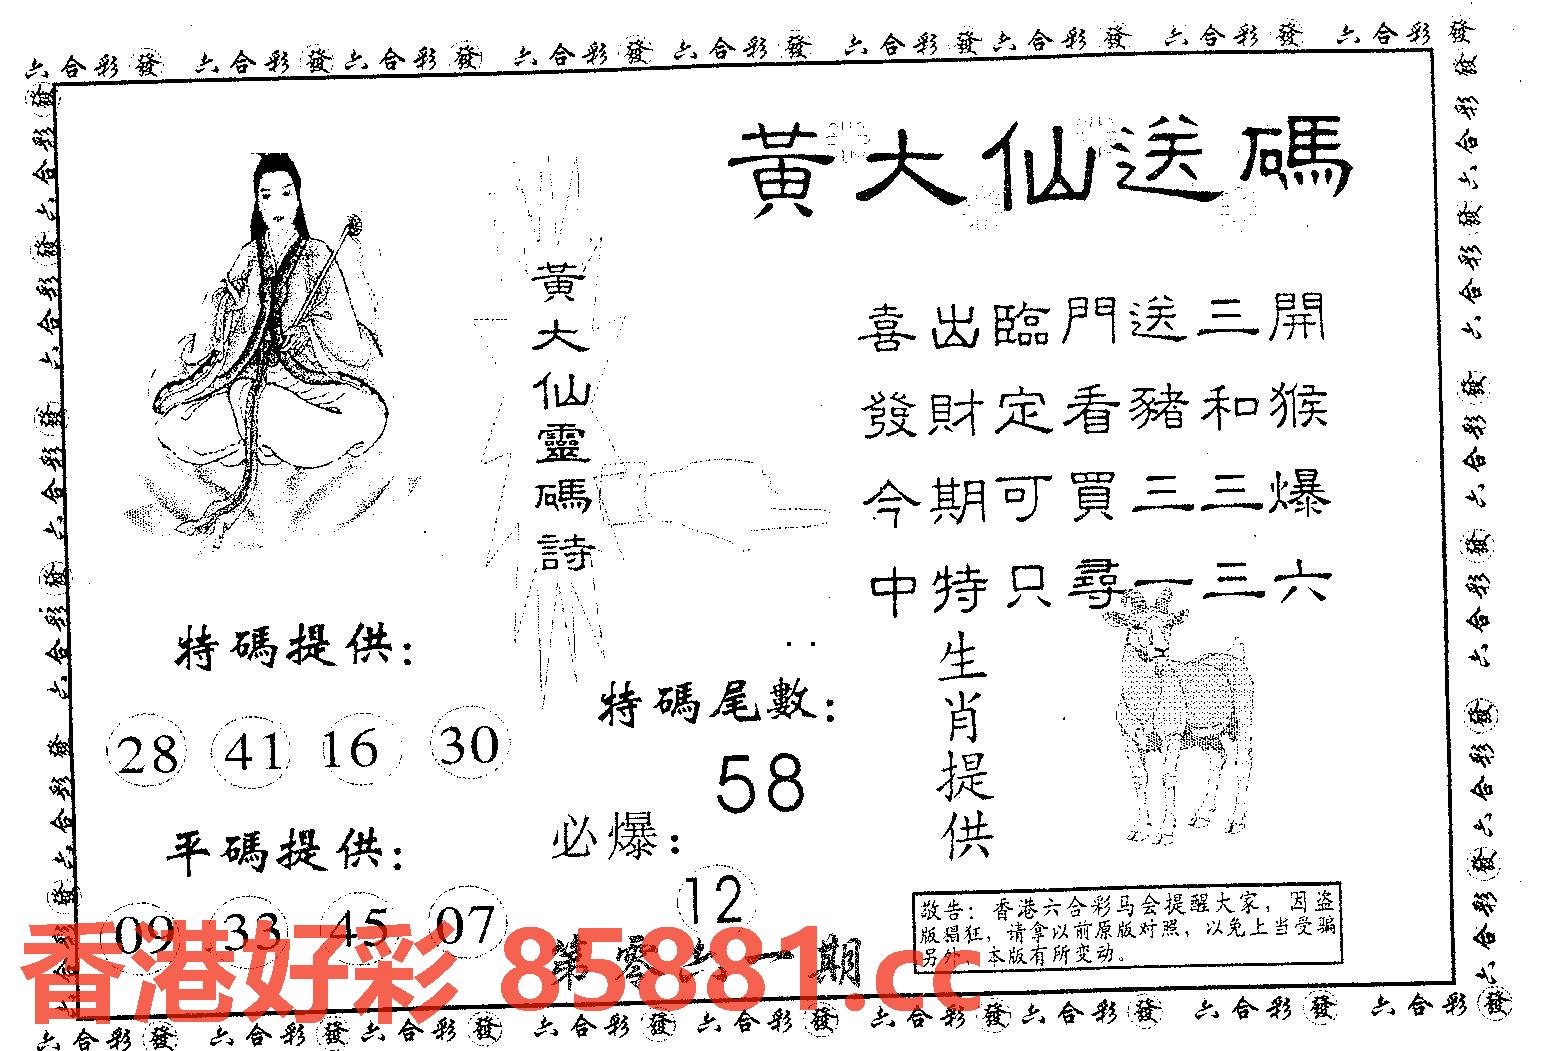 六合彩發 六合彩發 六合彩發 六合彩發 六合彩發 六合彩發 六合彩發 六合彩發 六合彩發
黃大仙送碼
黃大仙靈碼詩
喜出臨門送三開
發財定看豬和猴
今期可買三三爆
中特只尋一三六
特碼提供:
28 41 16 30
平碼提供:
09 33 45 07
特碼尾數:
58
必爆:
12
第零六一期
生肖提供
敬告:香港六合彩马会提醒大家,因盗
版猖狂,请拿以前原版对照,以免上当受骗
另外,本版有所变动。
香港好彩 85881.cc
六合彩發 六合彩發 六合彩發 六合彩發 六合彩發 六合彩發 六合彩發 六合彩發 六合彩發